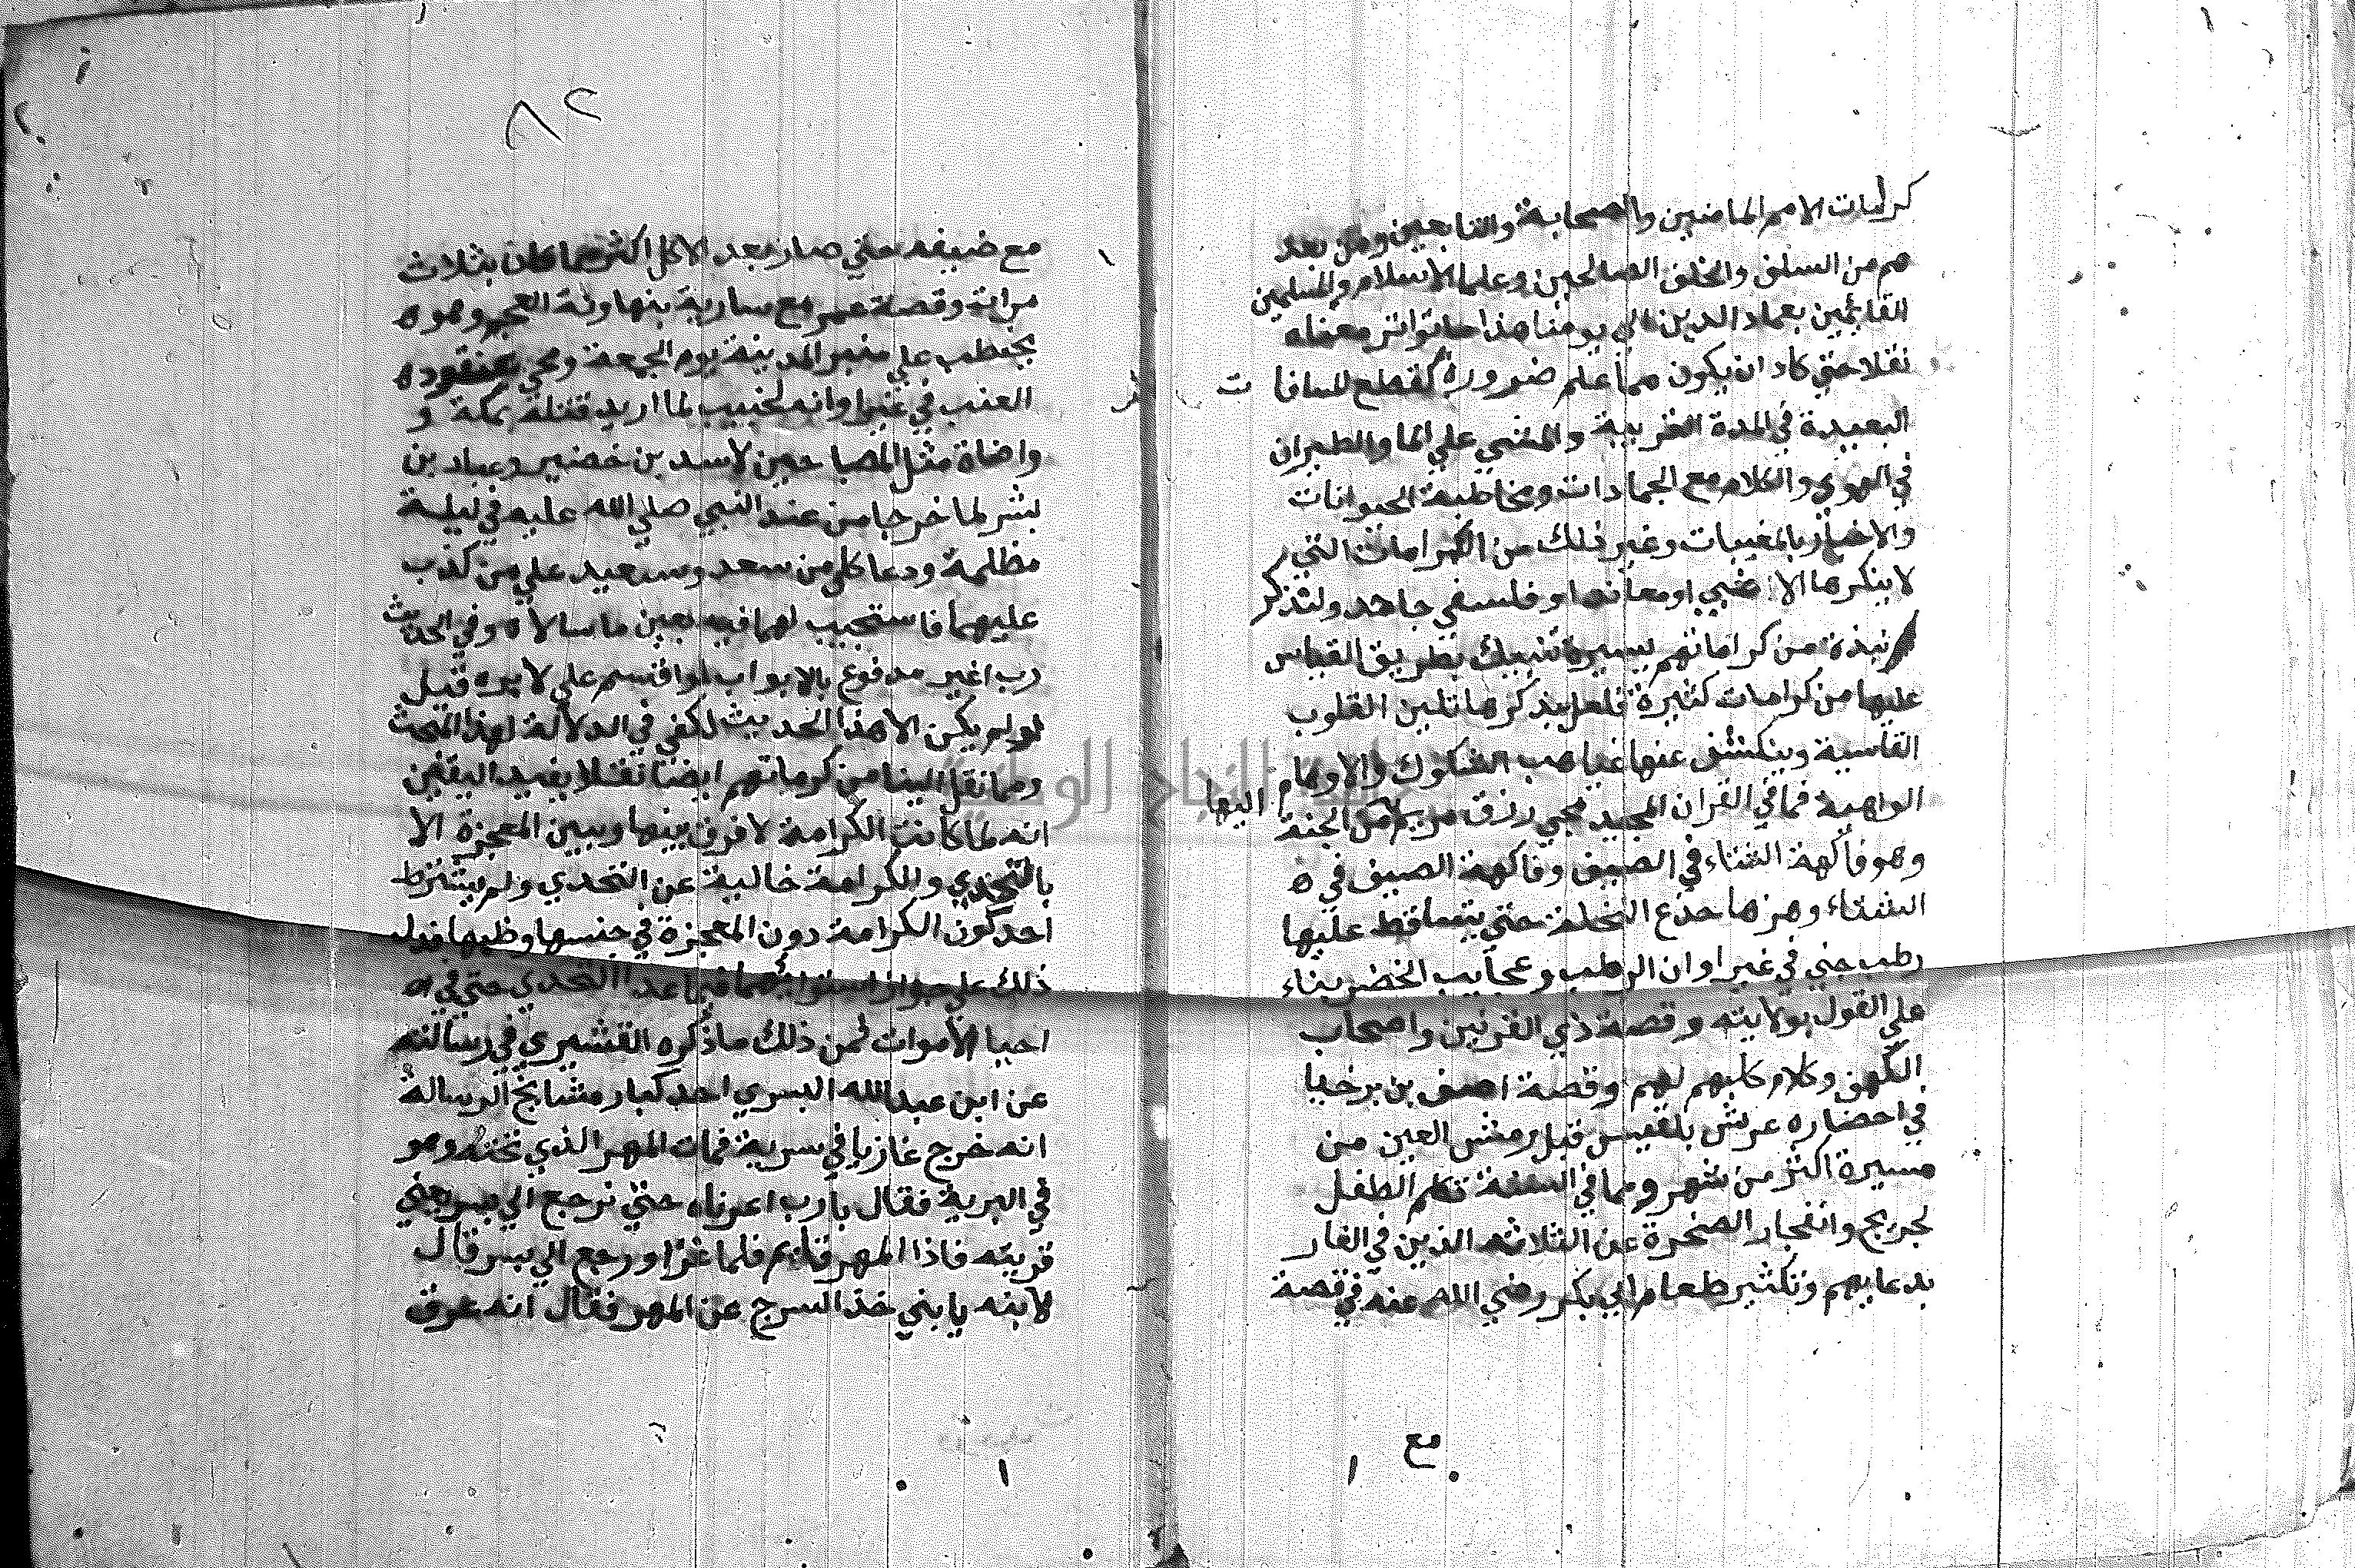 كرامات الامم الماضيين والصحابة والتابعين ومن بعد
هم من السلف والخلف الصالحين وعلما الاسلام والمسلمين
القايمين بعماد الدين الي يومنا هذا ما تواتر معناه
نقلا حتي كاد ان يكون مما علم ضرورة كقطع المسافا ت
البعيدة في المدة القريبة والمشي علي الما والطيران
في الهوي والكلام مع الجمادات ومخاطبة الحيوانات
والاخبار بالمغيبات وغير ذلك من الكرامات التي
لا ينكرها الا غبي او معاند او فلسفي جاهد ولنذكر
نبذة من كراماتهم يسيرة تنبيك بطريق القياس
عليها من كرامات كثيرة فلعل بذكرها تلين القلوب
القاسية وينكشف عنها غياهب الشكوك والاوهام
الواهية فمما في القران المجيد مجي رزق مريم من الجنة اليها
وهو فاكهة الشتاء في الصيف وفاكهة الصيف في ه
الشتاء وهزها جذع النخلة حتي يتساقط عليها
رطب جني في غير اوان الرطب وعجايب الخضر بناء
علي القول بولايته وقصة ذي القرنين واصحاب
الكهف وكلام كلبهم لهم وقصة اصف بن برخيا
في احضاره عرش بلقيس قبل رمش العين من
مسيرة اكثر من شهر ومما في السنة تكلم الطفل
لجريج وانفجار الصخرة عن الثلاثه الذين في الغار
بدعايهم وتكثير طعام ابي بكر رضي الله عنه في قصة
مع
٨٢
مع ضيفه حتي صار بعد الاكل اكثر مما كان بثلاث
مرات وقصة عمر مع سارية بنهاوند العجم وهو ه
يخطب علي منبر المدينة يوم الجمعة ومجي عنقود ه
العنب في غير اوانه لخبيب لما اريد قتله بمكة و
واضاة مثل المصباحين لاسد بن خضير وعباد بن
بشر لما خرجا من عند النبي صلي الله عليه في ليلة
مظلمة ودعا كل من سعد وسعيد علي من كذب
عليهما فاستجيب لهما فيه بعين ما سالاه وفي الحديث
رب اغبر مدفوع بالابواب لو اقسم علي لابره قيل
لو لم يكن الا هذا الحديث لكفي في الدلالة لهذا المبحث
ومما نقل الينا من كرماتهم ايضا نقلا يفيد اليقين
انه لما كانت الكرامة لا فرق بينها وبين المعجزة الا
بالتحدي والكرامة خالية عن التحدي ولم يشترط
احد كون الكرامة دون المعجزة في جنسها وظبها فدل
ذلك علي جواز استوائهما فيما عدا التحدي حتي في ه
احيا الاموات فمن ذلك ما ذكره القشيري في رسالته
عن ابن عبد الله البسري احد كبار مشايخ الرسالة
انه خرج غازيا في سرية فمات المهر الذي تحته وهو
في البرية فقال يا رب اعرناه حتي نرجع الي بسر يعني
قريته فاذا المهر قايم فلما غزا ورجع الي بسر قال
لابنه يا بني خذ السرج عن المهر فقال انه عرق